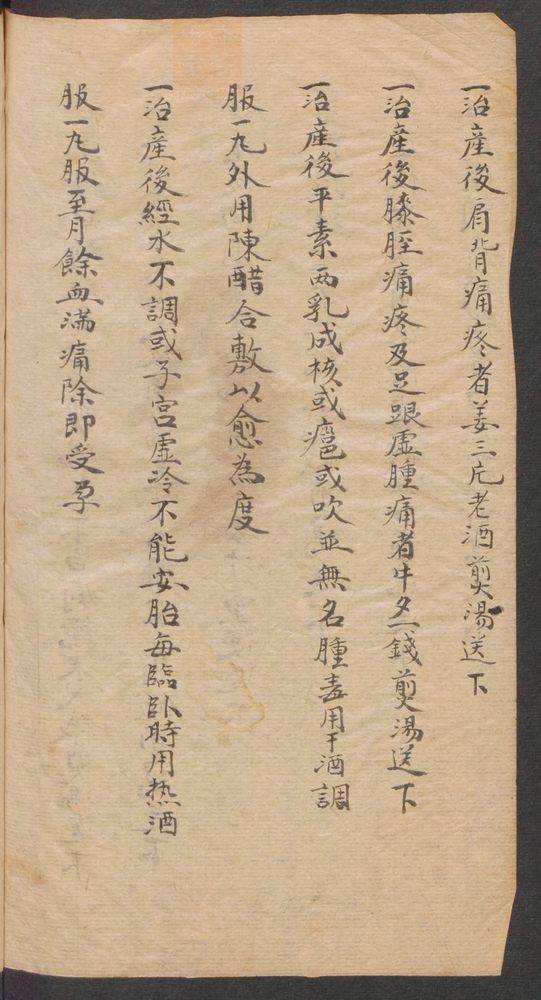 一治產後肩背痛疼者姜三片老酒煎湯送下
一治產後膝脛痛疼及足跟虛腫痛者牛夕一錢煎湯送下
一治產後平素兩乳成核或癰或吹並無名腫毒用干酒調
服一丸外用陳醋合敷以愈為度
一治產後經水不調或子宮虛冷不能安胎每臨臥時用热酒
服一丸服至月餘血滿痛除即受孕